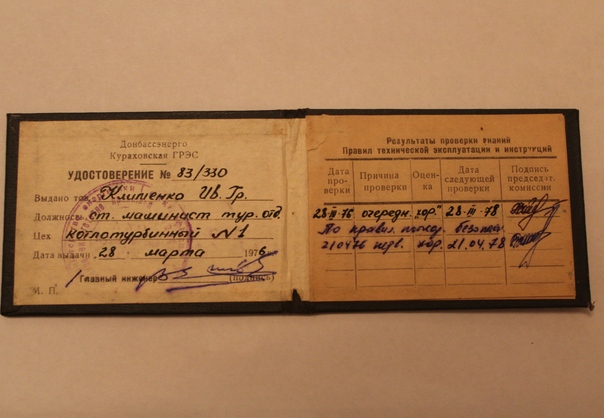 Донбассэнерго
Кураховская ГРЭС
УДОСТОВЕРЕНИЕ № 83/330
Выдано тов. Клименко Ив. Гр.
Должность ст. машинист тур. отд.
Цех котлотурбинный N1
Дата выдачи „28 марта 1976
Главный инженер
(подпись)
М. П.
Результаты проверки знаний
Правил технической эксплуатации и инструкций
Дата проверки Причина проверки Оценка Дата следующей проверки Подпись председат. комиссии
28-III-76 очередн. „хор." 28-III-78
По правил. безопасн.
210476 хор. 21.04.78